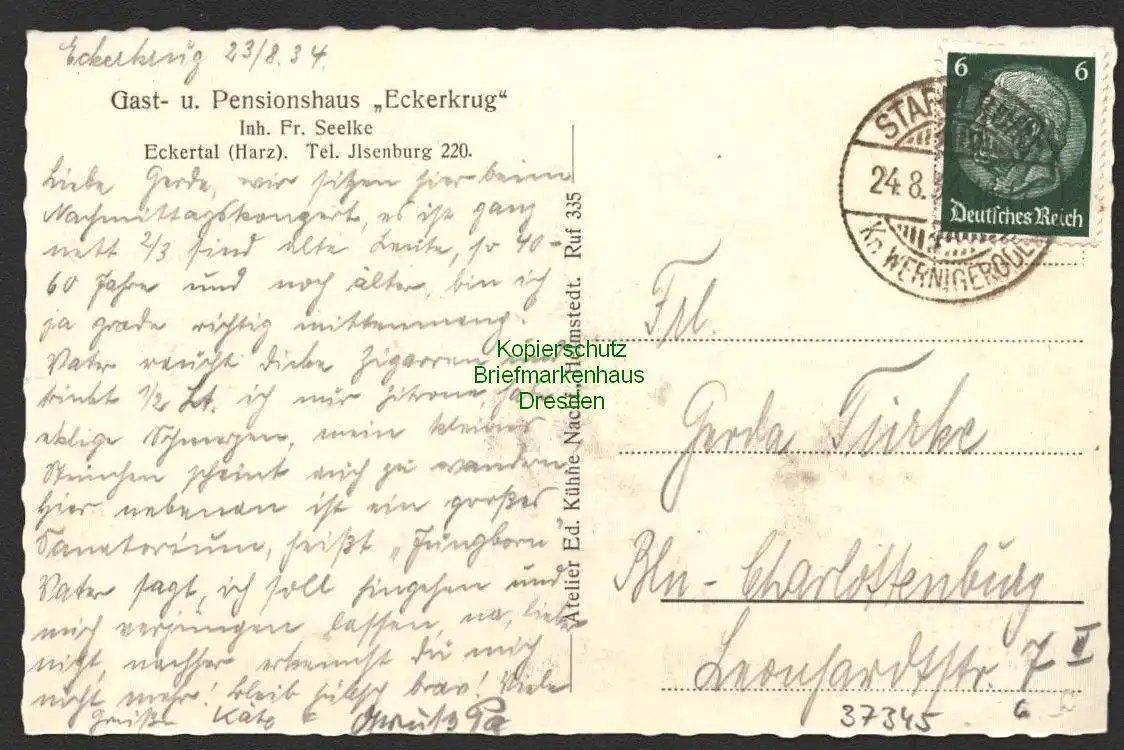 Eckerkrug 23/8.34.
Gast- u. Pensionshaus „Eckerkrug“
Inh. Fr. Seelke
Eckertal (Harz). Tel. Jlsenburg 220.
Liebe Gerda, wir sitzen hier beim
Nachmittagskonzert, es ist ganz
nett 2/3 sind alte Leute, so 40-
60 Jahre und noch älter, bin ich
ja grade richtig mittenmang.
Vater raucht dicke Zigarren und
trinkt 1/2 Lt. ich nur Zitrone, habe
eklige Schmerzen, mein kleines
Steinchen scheint mich zu wandern
Hier nebenan ist ein großes
Sanatorium, heißt „Jungborn“
Vater sagt, ich soll hingehen und
mich verjüngen lassen, na, lieber
nicht, nachher erkennst du mich
nicht mehr! Bleib hübsch brav! Viele
Grüße Käte
Gruß Pa
Atelier Ed. Kühne Nachf., Helmstedt. Ruf 335
6 6
Deutsches Reich
STAPELBURG
24.8.
Kr. WERNIGERODE
Frl.
Gerda Türke
Bln - Charlottenburg
Leonhardtstr. 7 II
37345
6
Kopierschutz
Briefmarkenhaus
Dresden